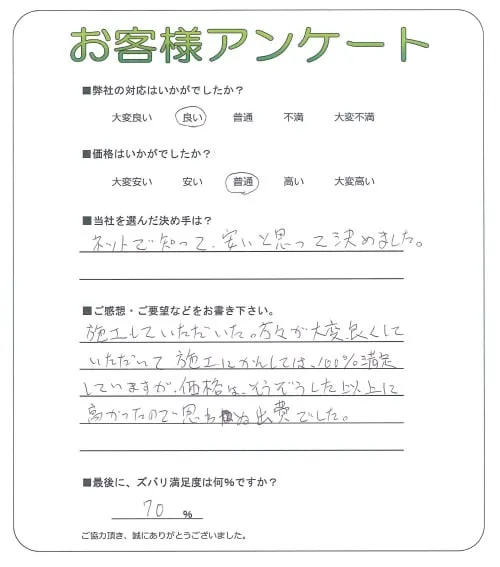 お客様アンケート
■弊社の対応はいかがでしたか？
大変良い 良い 普通 不満 大変不満
■価格はいかがでしたか？
大変安い 安い 普通 高い 大変高い
■当社を選んだ決め手は？
ネットで知って、安いと思って決めました。
■ご感想・ご要望などをお書き下さい。
施工していただいた。方々が大変良くして
いただいて施工にかんしては、100%満足
していますが、価格は、そうぞうした以上に
高かったので思わぬ出費でした。
■最後に、ズバリ満足度は何%ですか？
70 %
ご協力頂き、誠にありがとうございました。